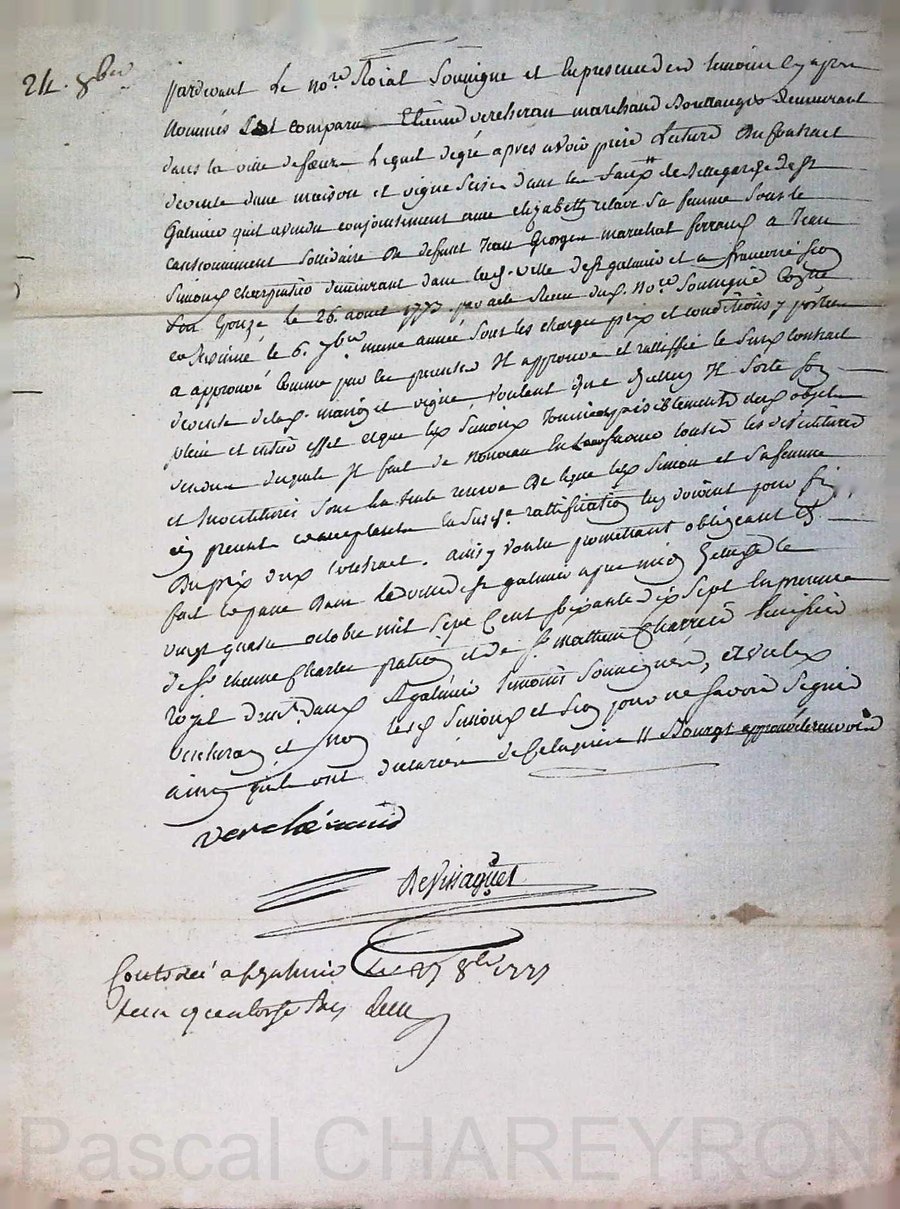 24. 8bre
pardevant Le no.re Roial Soussigné et En presence des temoins Cy apres
Nommés Est comparu Etienne vercheran marchand Boullanger Demeurant
dans la ville de Lequel de gré apres avoir prise Lecture Du Contract
de vente dune maison et vigne Scise dans les faux.gs de St
Galmier quil a vendu conjointement avec Elizabeth relave Sa femme Sous le
cautionnement Solidaire De defunt Jean Georges marechal ferrand a Jean
Simoux Charpentier demeurant dans lad. ville de St galmier et a francoise
Son Epouze le 26. aout 1777. par acte Receu dud. No.re Soussigné Controllé
le 6. 7bre. meme année Sous les charges prix et conditions y portées
a approuvé Comme par les presentes Il approuve et rattiffie le Susd. Contract
de vente delad. maison et vigne voulant que Il Sorte Son
plein et entier effet et que led. Simoux Jouisse paisiblement des objets
vendus desquels Il fait de nouveau En Leur faveur toutes les devetitures
et Investitures Sous la Seule reserve De ce que led. Simon et Sa femme
cy presents acceptants la Susd.e rattification luy doivent pour fin
Du prix dud. Contract. ainsy voulu promettant obligeant &
fait et passé Dans la ville de St galmier apres midy Le
vingt quatre octobre mil Sept Cent Soixante dix Sept En presence
de Sr. Etienne Charles praticien et de Sr. mathieu Charrein huissier
royal Demt. Dans St galmier temoins Soussignés, avec led.
vercheran et Non lesd. Simoux et pour ne Savoir Signer
ainsy quils ont declaré de Ce Enquis // Bourgs approuvé le renvoi
vercherand
Revissaguet
Controllé a St galmier le 27 8bre 1777
Receu quatorze Sols